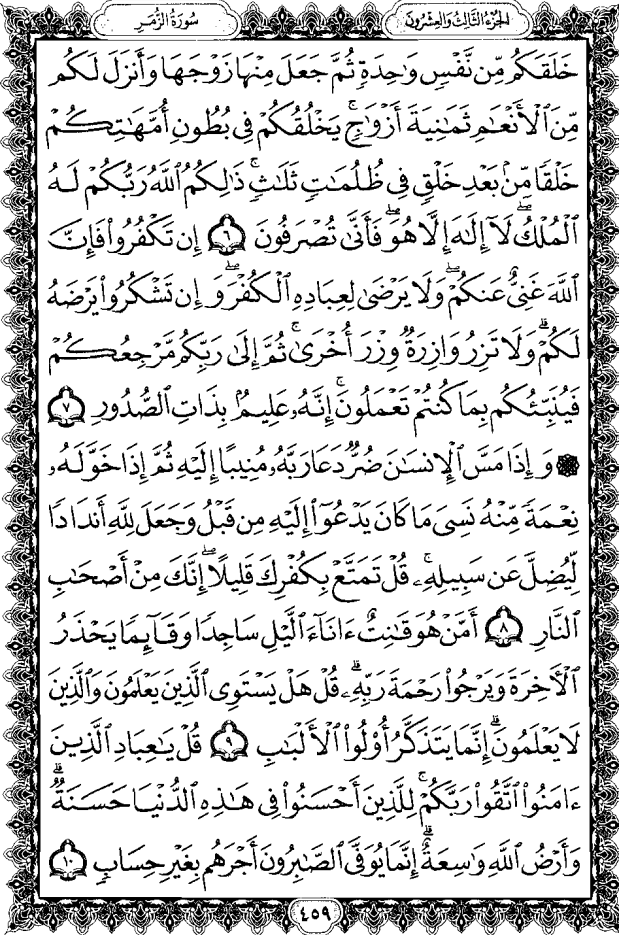 الجزء الثالث والعشرون
سورة الزمر
خَلَقَكُم مِّن نَّفْسٍ وَٰحِدَةٍ ثُمَّ جَعَلَ مِنْهَا زَوْجَهَا وَأَنزَلَ لَكُم
مِّنَ ٱلْأَنْعَٰمِ ثَمَٰنِيَةَ أَزْوَٰجٍ ۚ يَخْلُقُكُمْ فِى بُطُونِ أُمَّهَٰتِكُمْ
خَلْقًا مِّنۢ بَعْدِ خَلْقٍ فِى ظُلُمَٰتٍ ثَلَٰثٍ ۚ ذَٰلِكُمُ ٱللَّهُ رَبُّكُمْ لَهُ
ٱلْمُلْكُ ۖ لَآ إِلَٰهَ إِلَّا هُوَ ۖ فَأَنَّىٰ تُصْرَفُونَ ٦ إِن تَكْفُرُوا۟ فَإِنَّ
ٱللَّهَ غَنِىٌّ عَنكُمْ ۖ وَلَا يَرْضَىٰ لِعِبَادِهِ ٱلْكُفْرَ ۖ وَإِن تَشْكُرُوا۟ يَرْضَهُ
لَكُمْ ۗ وَلَا تَزِرُ وَازِرَةٌ وِزْرَ أُخْرَىٰ ۚ ثُمَّ إِلَىٰ رَبِّكُم مَّرْجِعُكُمْ
فَيُنَبِّئُكُم بِمَا كُنتُمْ تَعْمَلُونَ ۚ إِنَّهُۥ عَلِيمٌۢ بِذَاتِ ٱلصُّدُورِ ٧
۞ وَإِذَا مَسَّ ٱلْإِنسَٰنَ ضُرٌّ دَعَا رَبَّهُۥ مُنِيبًا إِلَيْهِ ثُمَّ إِذَا خَوَّلَهُۥ
نِعْمَةً مِّنْهُ نَسِىَ مَا كَانَ يَدْعُوٓا۟ إِلَيْهِ مِن قَبْلُ وَجَعَلَ لِلَّهِ أَندَادًا
لِّيُضِلَّ عَن سَبِيلِهِۦ ۚ قُلْ تَمَتَّعْ بِكُفْرِكَ قَلِيلًا ۖ إِنَّكَ مِنْ أَصْحَٰبِ
ٱلنَّارِ ٨ أَمَّنْ هُوَ قَٰنِتٌ ءَانَآءَ ٱلَّيْلِ سَاجِدًا وَقَآئِمًا يَحْذَرُ
ٱلْءَاخِرَةَ وَيَرْجُوا۟ رَحْمَةَ رَبِّهِۦ ۗ قُلْ هَلْ يَسْتَوِى ٱلَّذِينَ يَعْلَمُونَ وَٱلَّذِينَ
لَا يَعْلَمُونَ ۗ إِنَّمَا يَتَذَكَّرُ أُو۟لُوا۟ ٱلْأَلْبَٰبِ ٩ قُلْ يَٰعِبَادِ ٱلَّذِينَ
ءَامَنُوا۟ ٱتَّقُوا۟ رَبَّكُمْ ۚ لِلَّذِينَ أَحْسَنُوا۟ فِى هَٰذِهِ ٱلدُّنْيَا حَسَنَةٌ ۗ
وَأَرْضُ ٱللَّهِ وَٰسِعَةٌ ۗ إِنَّمَا يُوَفَّى ٱلصَّٰبِرُونَ أَجْرَهُم بِغَيْرِ حِسَابٍ ١٠
٤٥٩